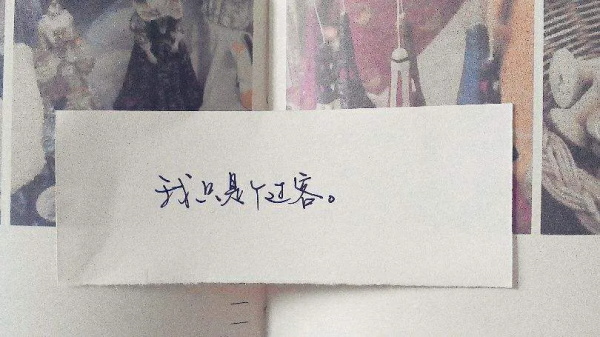 我只是个过客。